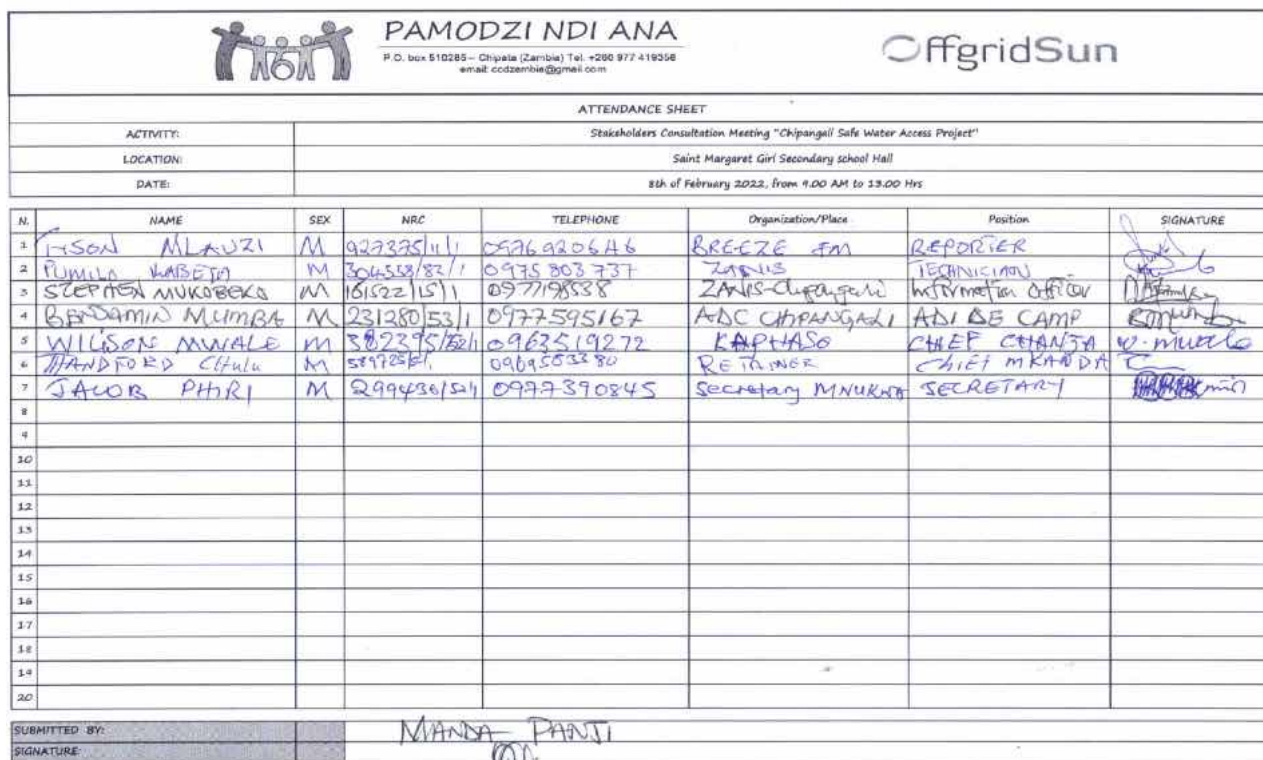 PAMODZI NDI ANA
OffgridSun
P.O. box 510285 – Chipata (Zambia) Tel. +260 977 419358
email: ccdzambia@gmail.com
ATTENDANCE SHEET
ACTIVITY: Stakeholders Consultation Meeting "Chipangali Safe Water Access Project"
LOCATION: Saint Margaret Girl Secondary school Hall
DATE: 8th of February 2022, from 9.00 AM to 13.00 Hrs
N. NAME SEX NRC TELEPHONE Organization/Place Position SIGNATURE
1 MLAUZI M 927375/11/1 0976920646 BREEZE FM REPORTER
2 M 304558/82/1 0975 803 737 ZANIS TECHNICIAN
3 STEPHEN MUKOBEKO M 161522/15/1 0977198538 ZANIS-Chipangali Information Officer
4 BENJAMIN MUMBA M 231280/53/1 0977595167 ADC CHIPANGALI ADI DE CAMP
5 WILSON MWALE M 382395/52/1 0963519272 KAPHASO CHIEF CHANJA W. Mwale
6 HANDFORD CHulu M RETAINER CHIEF MKANDA
7 JACOB PHIRI M 299436/52/1 0977390845 Secretary MNUKWA SECRETARY
8
9
10
11
12
13
14
15
16
17
18
19
20
SUBMITTED BY: MANDA PANJI
SIGNATURE: